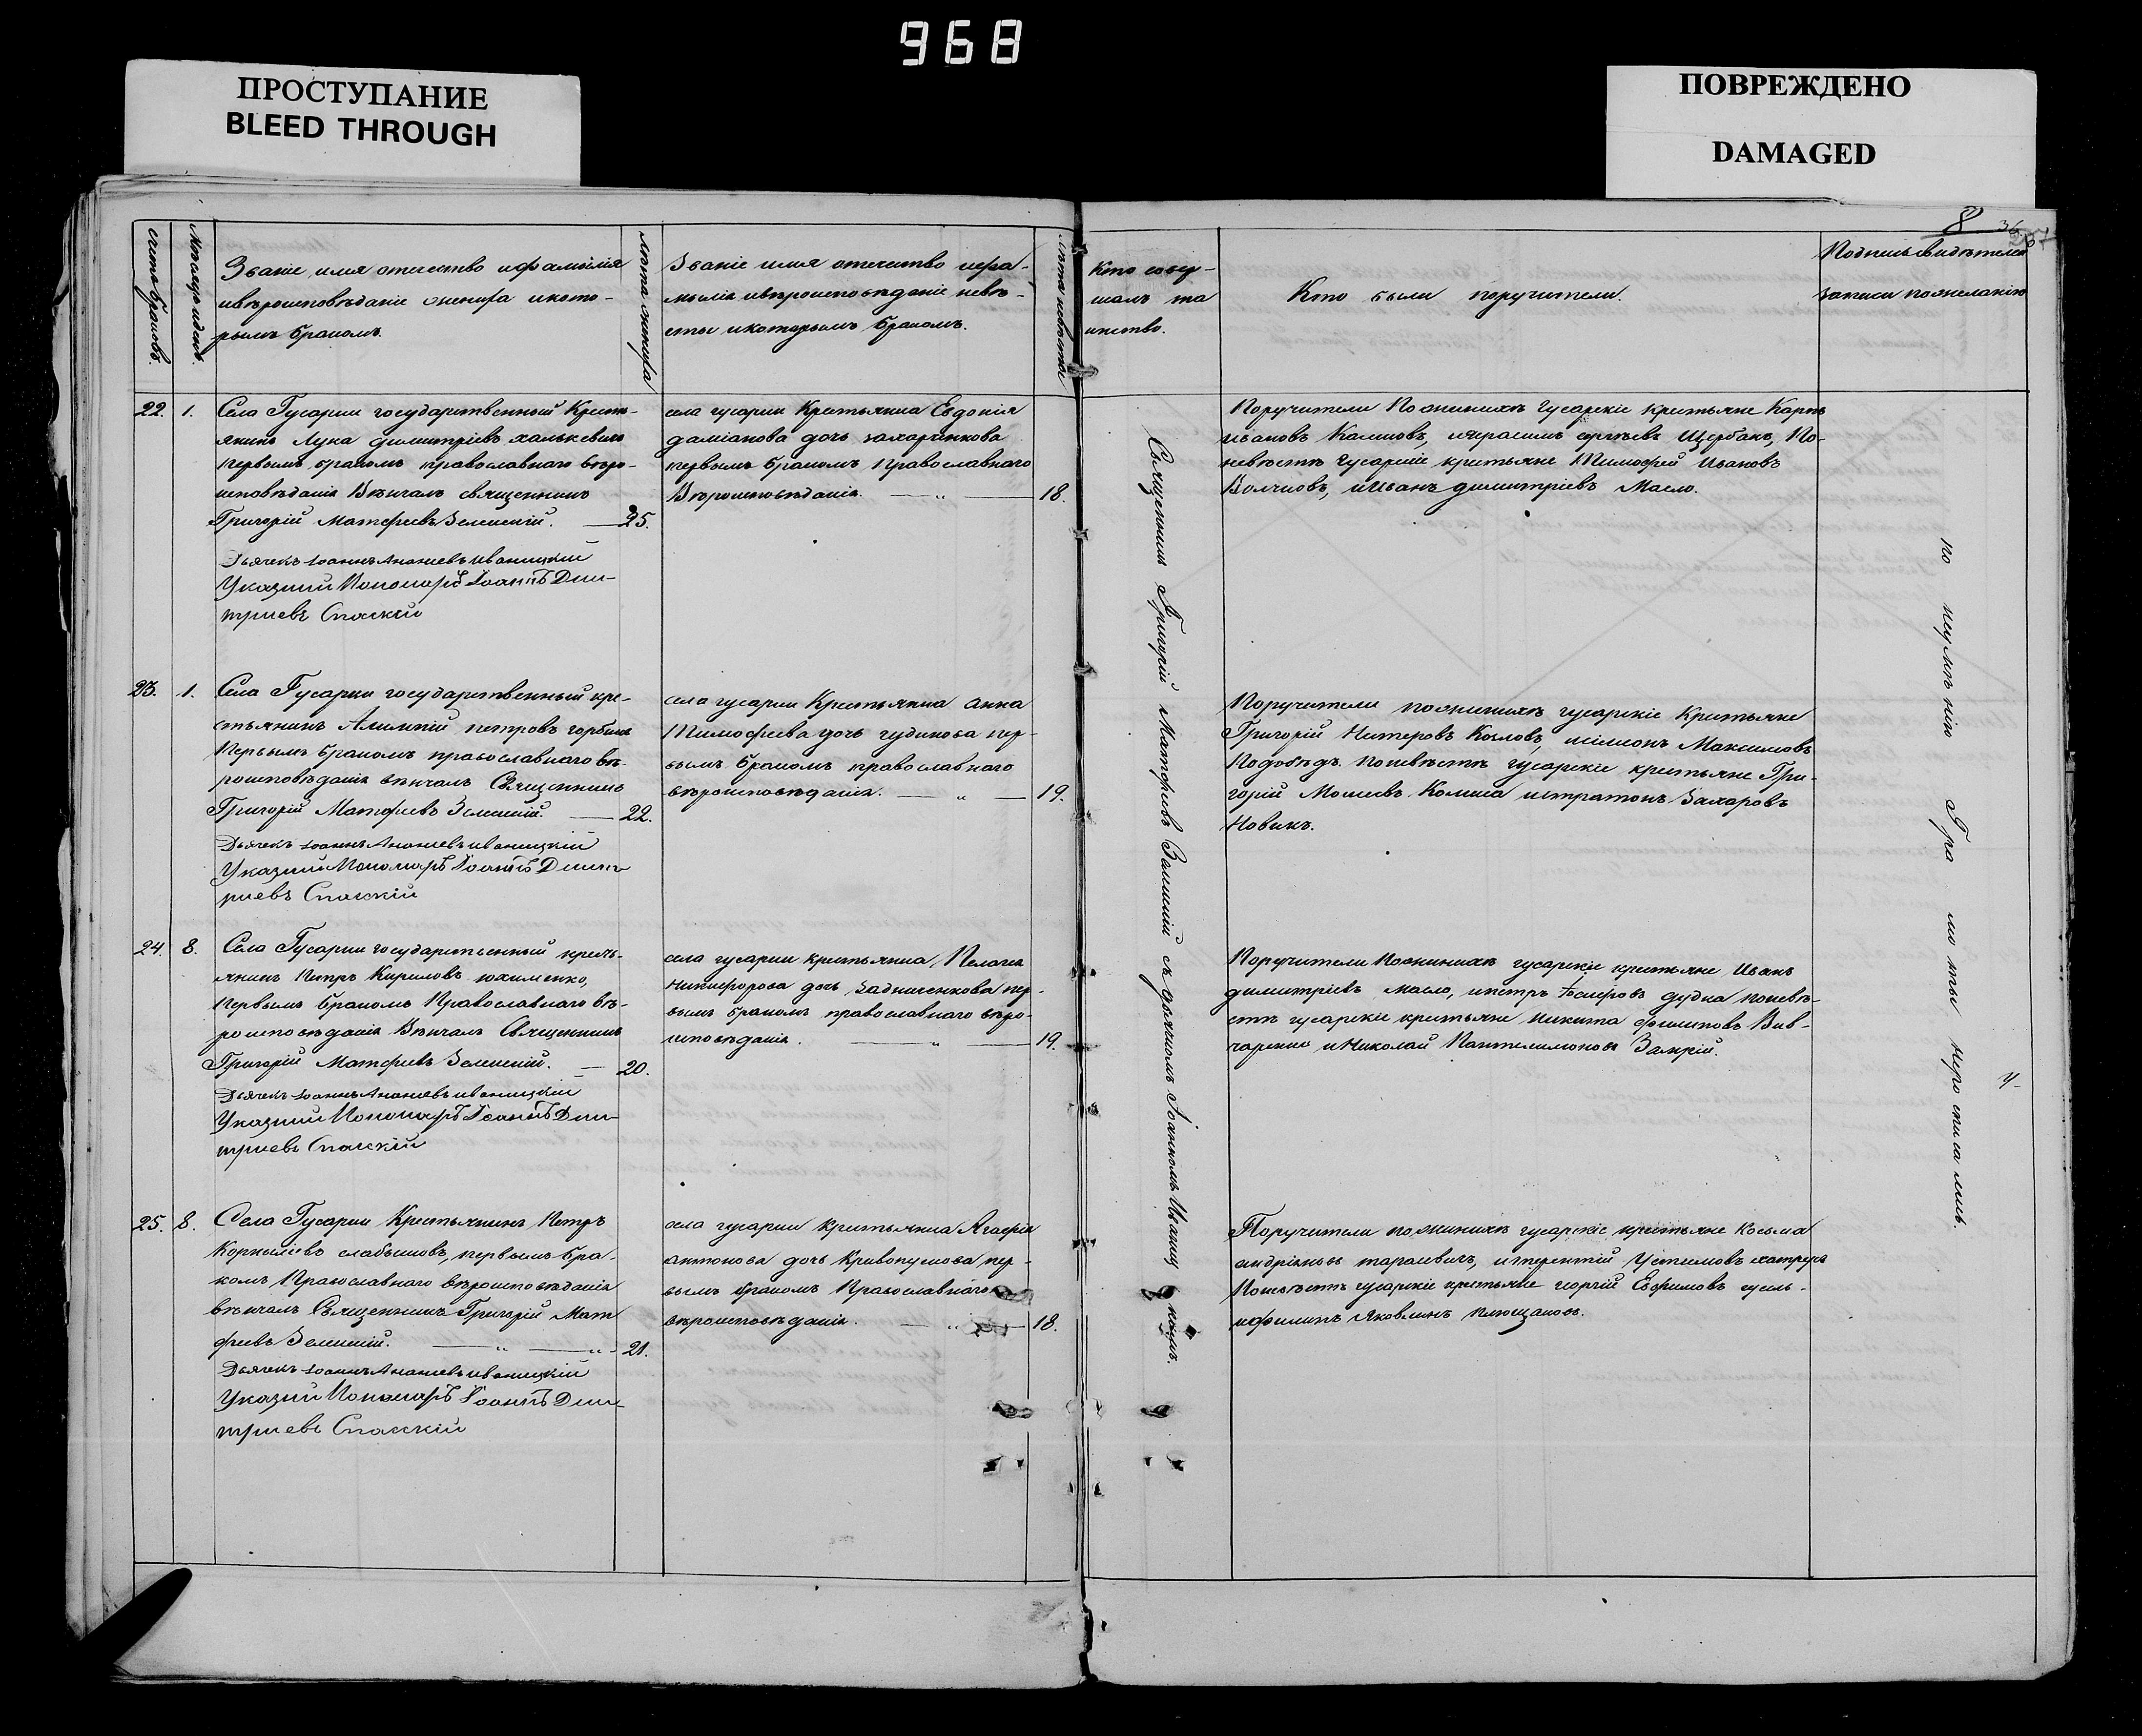 968
ПРОСТУПАНИЕ
BLEED THROUGH
ПОВРЕЖДЕНО
DAMAGED
8
счетъ браковъ.
Мѣсяцъ и день.
Званіе, имя отечество и фамилія
и вѣроисповѣданіе жениха и кото-
рымъ бракомъ.
Лѣта жениха
Званіе имя отечество и фа-
милія и вѣроисповѣданіе невѣ-
сты и которымъ бракомъ.
Лѣта невѣсты
Кто совер-
шалъ та
инство.
Кто были поручители.
Подпись свидѣтелей
записи по желанію
22. 1. Села Гусарки государственный Кресть-
янинъ Лука димитріевъ
первымъ бракомъ православнаго вѣро-
исповѣданія Вѣнчалъ священникъ
Григорій Матфіевъ Зеленскій. 25.
Дьячекъ Іоаннъ Ананіевъ Иваницкій
Указный Пономарь Іоаннъ Дми-
тріевъ Спасскій
села гусарки Крестьянка Евдокія
даміанова дочь захарченкова
первымъ бракомъ православнаго
Вѣроисповѣданія. 18.
Поручители По женихѣ Гусарскіе крестьяне Карпъ
ивановъ и герасимъ сергѣевъ Щербакъ, По
невѣстѣ Гусарскіе крестьяне Тимофей Ивановъ
Волчковъ, и Иванъ димитріевъ Масло.
23. 1. Села Гусарки государственный кре-
стьянинъ петровъ
Первымъ бракомъ православнаго вѣ-
роисповѣданія вѣнчалъ Священникъ
Григорій Матфіевъ Зеленскій. 22.
Дьячекъ Іоаннъ Ананіевъ Иваницкій
Указный Пономарь Іоаннъ Димит-
ріевъ Спасскій
села гусарки Крестьянка Анна
Тимофеева дочь гудикова пер-
вымъ бракомъ православнаго
вѣроисповѣданія. 19.
Поручители по женихѣ гусарскіе Крестьяне
Григорій Козловъ, Максимовъ
По невѣстѣ гусарскіе крестьяне Гри-
горій Захаровъ
Новикъ.
24. 8. Села Гусарки государственный кресть-
янинъ Петръ Кириловъ юхименко,
Первымъ бракомъ Православнаго вѣ-
роисповѣданія Вѣнчалъ Священникъ
Григорій Матфіевъ Зеленскій. 20.
Дьячекъ Іоаннъ Ананіевъ Иваницкій
Указный Пономарь Іоаннъ Дми-
тріевъ Спасскій
села гусарки крестьянка Пелагея
Никифорова дочь Задниченкова пер-
вымъ бракомъ православнаго вѣро-
исповѣданія. 19.
Поручители По женихѣ гусарскіе крестьяне Иванъ
димитріевъ масло, и петръ Іосифовъ дудка по невѣ-
стѣ гусарскіе крестьяне Никита филиповъ Вив-
чаренко и Николай Пантелимоновъ
25. 8. Села Гусарки Крестьянинъ Петръ
Корниліевъ первымъ бра-
комъ Православнаго вѣроисповѣданія
вѣнчалъ Священникъ Григорій Мат
фіевъ Зеленскій. 21.
Дьячекъ Іоаннъ Ананіевъ Иваницкій
Указный Пономарь Іоаннъ Дми-
тріевъ Спасскій
села гусарки крестьянка Агафія
антонова дочь Кривопускова пер-
вымъ бракомъ Православнаго
вѣроисповѣданія. 18.
Поручители по женихѣ гусарскіе крестьяне Косьма
андріяновъ тарасевичъ, и терентій Устимовъ
По невѣстѣ гусарскіе крестьяне георгій Ефимовъ
и филипъ Яковлевъ
Священникъ Григорій Матфіевъ Зеленскій съ дьячкомъ Іоанномъ Иваниц кимъ.
по неумѣнію Гра мо ты Не ро списались